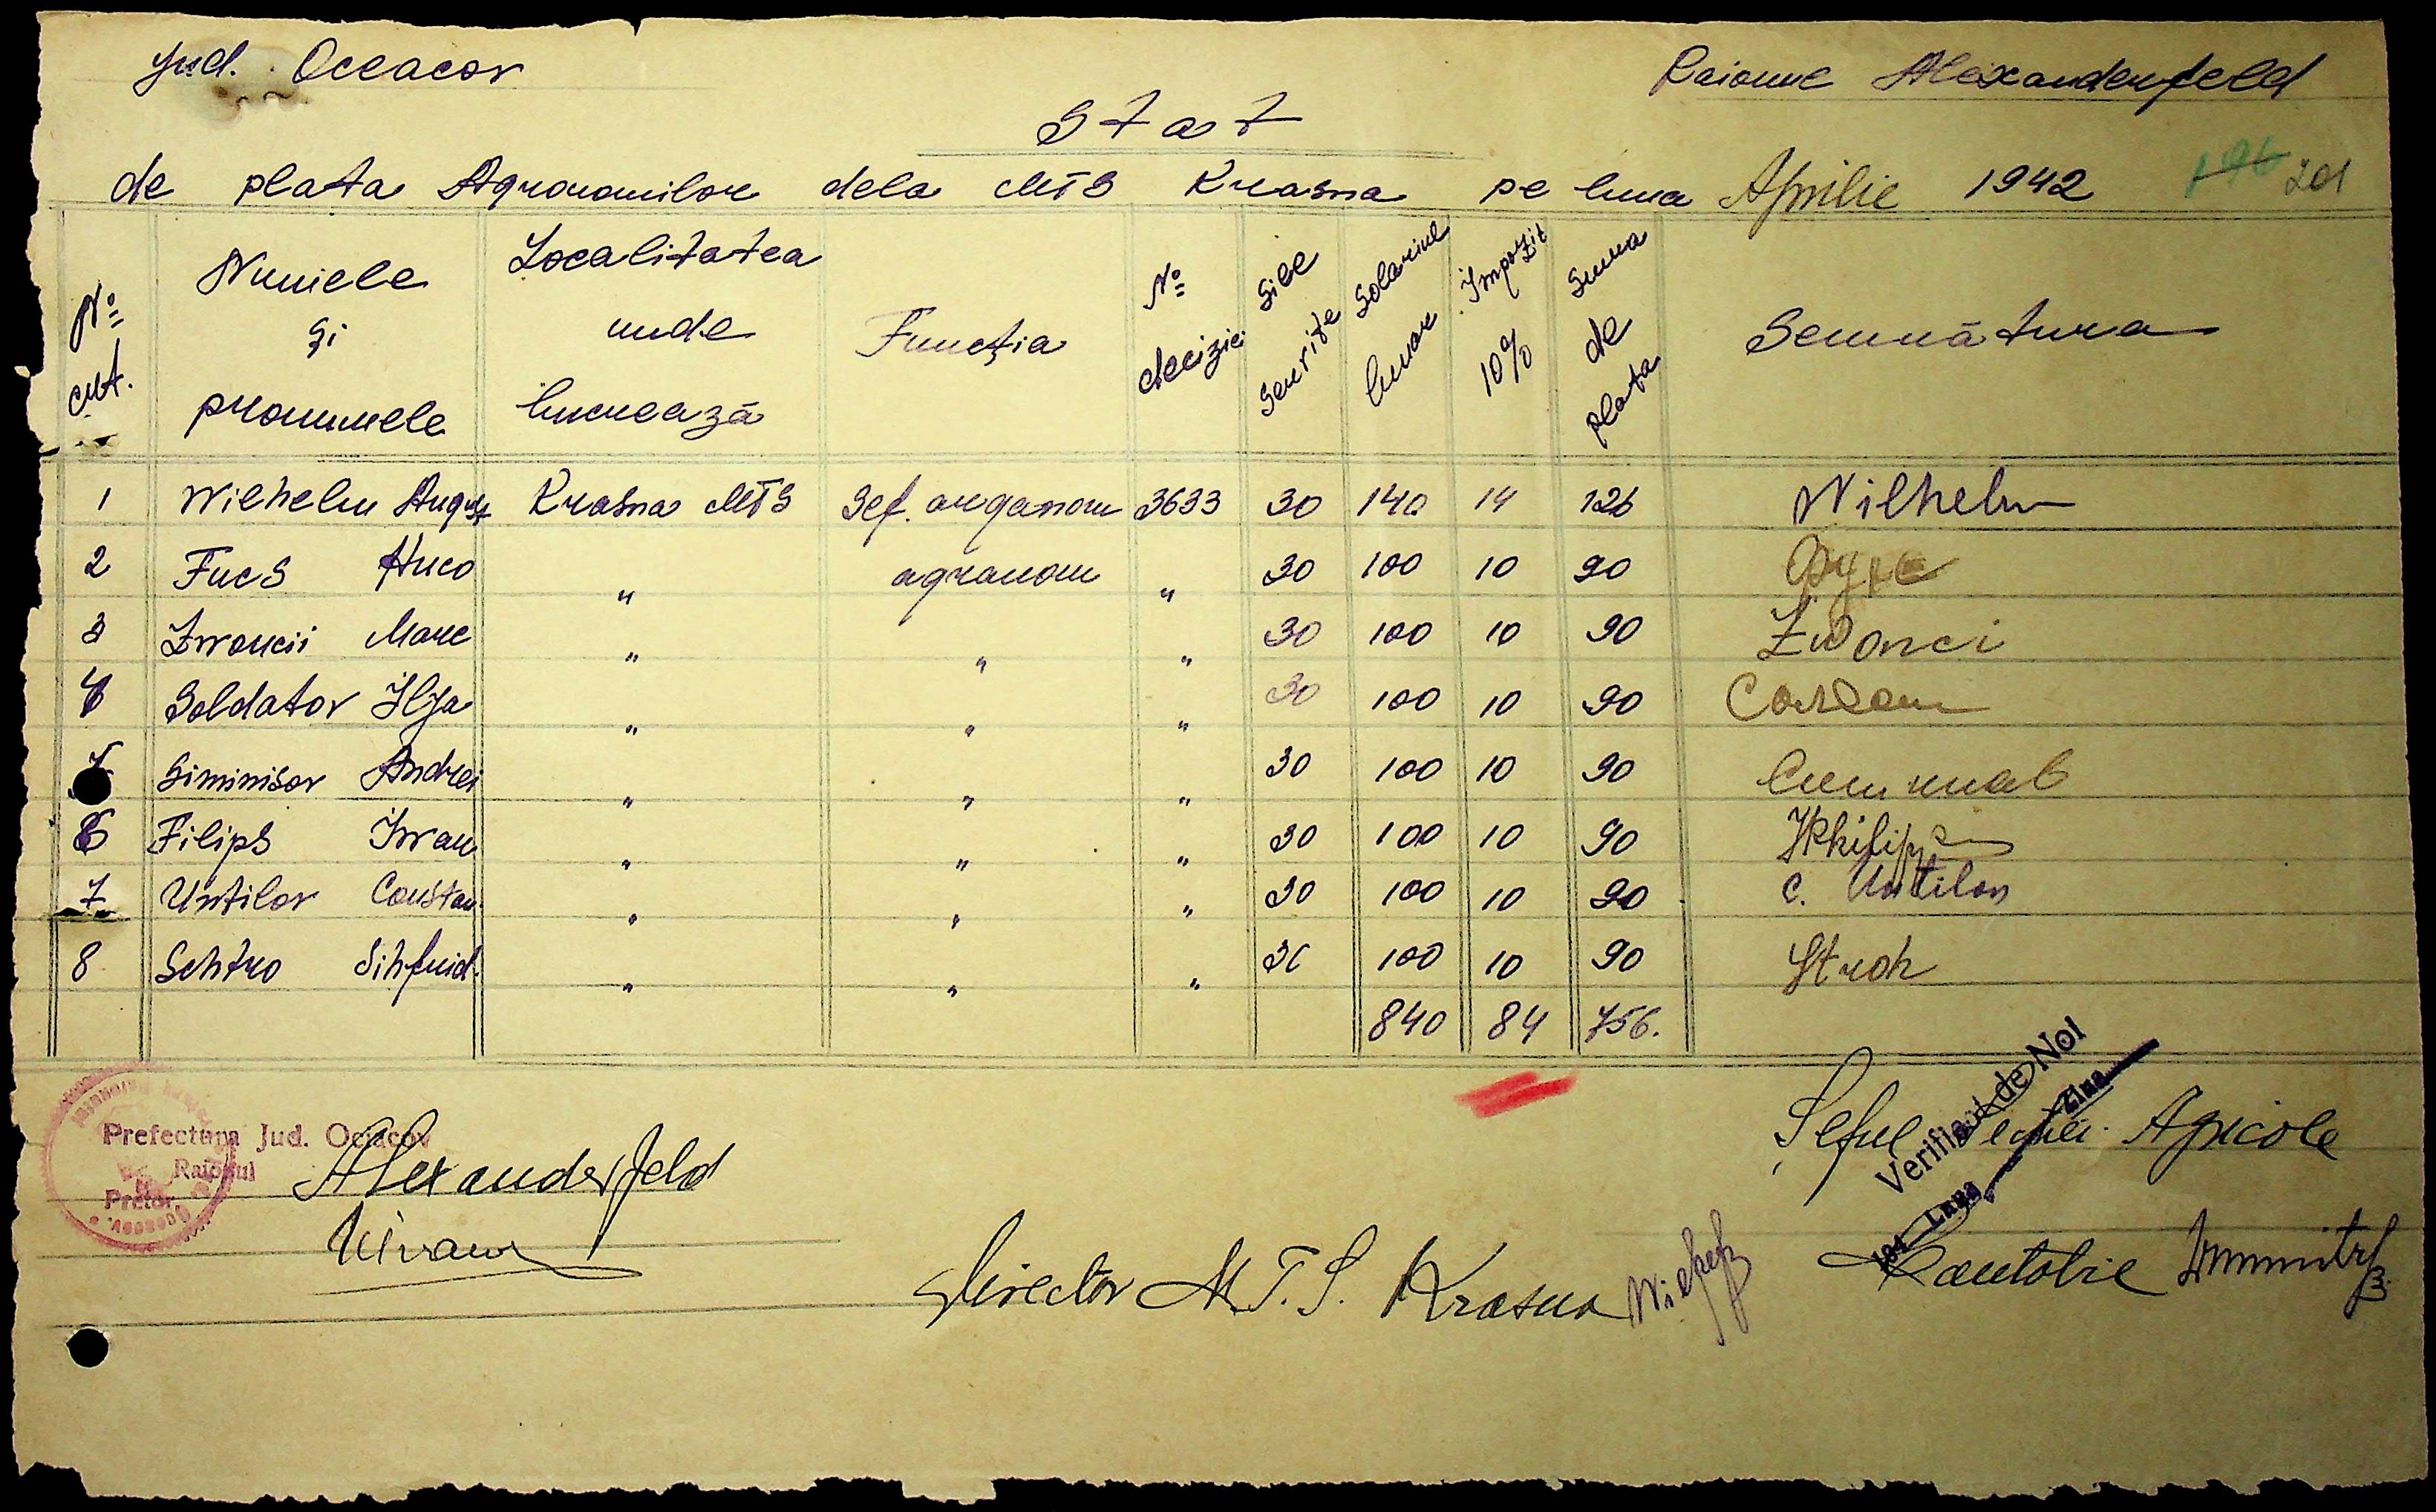 Jud. Oceacov
Raionul Alexanderfeld
Stat
de plata Agronomilor dela MTS Krasna pe luna Aprilie 1942
196 201
No crt. Numele și pronumele Localitatea unde lucrează Funcția No decizici Sile Serite Solariul lunar Impozit 10% Suma de plata Semnătura
1 Wilhelm August Krasna MTS Sef. arganom 3633 30 140 14 126 Wilhelm
2 Fucs Huco " agranom " 30 100 10 90
3 Zwoncii Marc " " " 30 100 10 90 Zwonci
4 Soldatov Ilja " " " 30 100 10 90
5 Siminisov Andrei " " " 30 100 10 90
6 Filips Ivan " " " 30 100 10 90 Philipp
7 Untilov Constan. " " " 30 100 10 90 C. Untilov
8 Schtro Sihfrid. " " " 30 100 10 90 Stroh
840 84 756.
Prefectura Jud. Oceacov
Raionul Alexanderfeld
Pretor
Verificat de Noi
194 Luna Ziua
Șeful Secției Agricole
Director M.T.S. Krasna